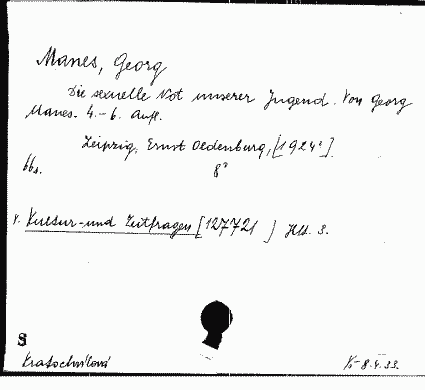 Manes, Georg
Die sexuelle Not unserer Jugend. Von Georg
Manes. 4.-6. Aufl.
Leipzig, Ernst Oldenburg, [1924²].
66 s. 8°
Kultur- und Zeitfragen [127721 ] Hft. 3.
S
Kratochvílová 8.4.33